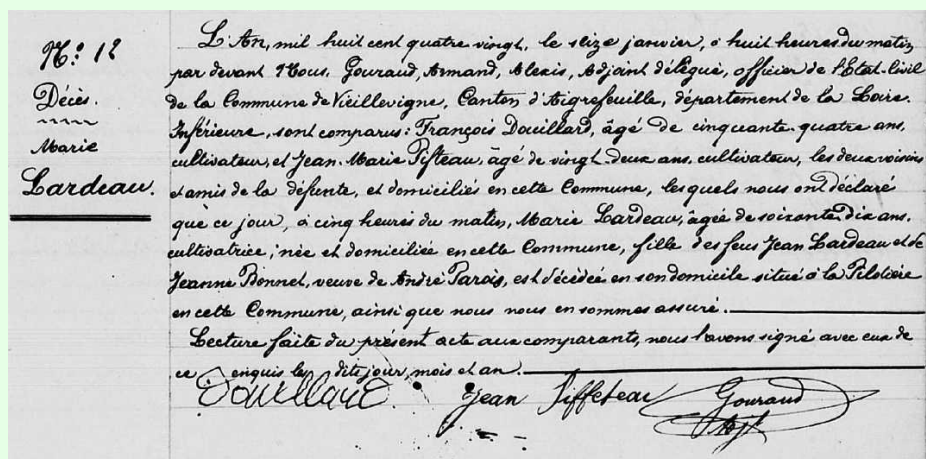 N.º 12
Décès.
Marie
Lardeau.
L'An, mil huit cent quatre vingt, le seize janvier, à huit heures du matin,
par devant Nous, Gouraud, Armand, Alexis, Adjoint délégué, officier de l'Etat-Civil
de la Commune de Vieillevigne, Canton d'Aigrefeuille, département de la Loire-
Inférieure, sont comparus: François Douillard, âgé de cinquante-quatre ans,
cultivateur, et Jean-Marie Piffteau, âgé de vingt-deux ans, cultivateur, les deux voisins
et amis de la défunte, et domiciliés en cette Commune, lesquels nous ont déclaré
que ce jour, à cinq heures du matin, Marie Lardeau, âgée de soixante-dix ans,
cultivatrice, née et domiciliée en cette Commune, fille des feus Jean Lardeau et de
Jeanne Bonnet, veuve de André Parois, est décédée en son domicile situé à la Pilotière
en cette Commune, ainsi que nous nous en sommes assuré.
Lecture faite du présent acte aux comparants, nous l'avons signé avec eux de
ce enquis les dits jour, mois et an.
Douillard. Jean Piffeteau Gouraud
Adjt